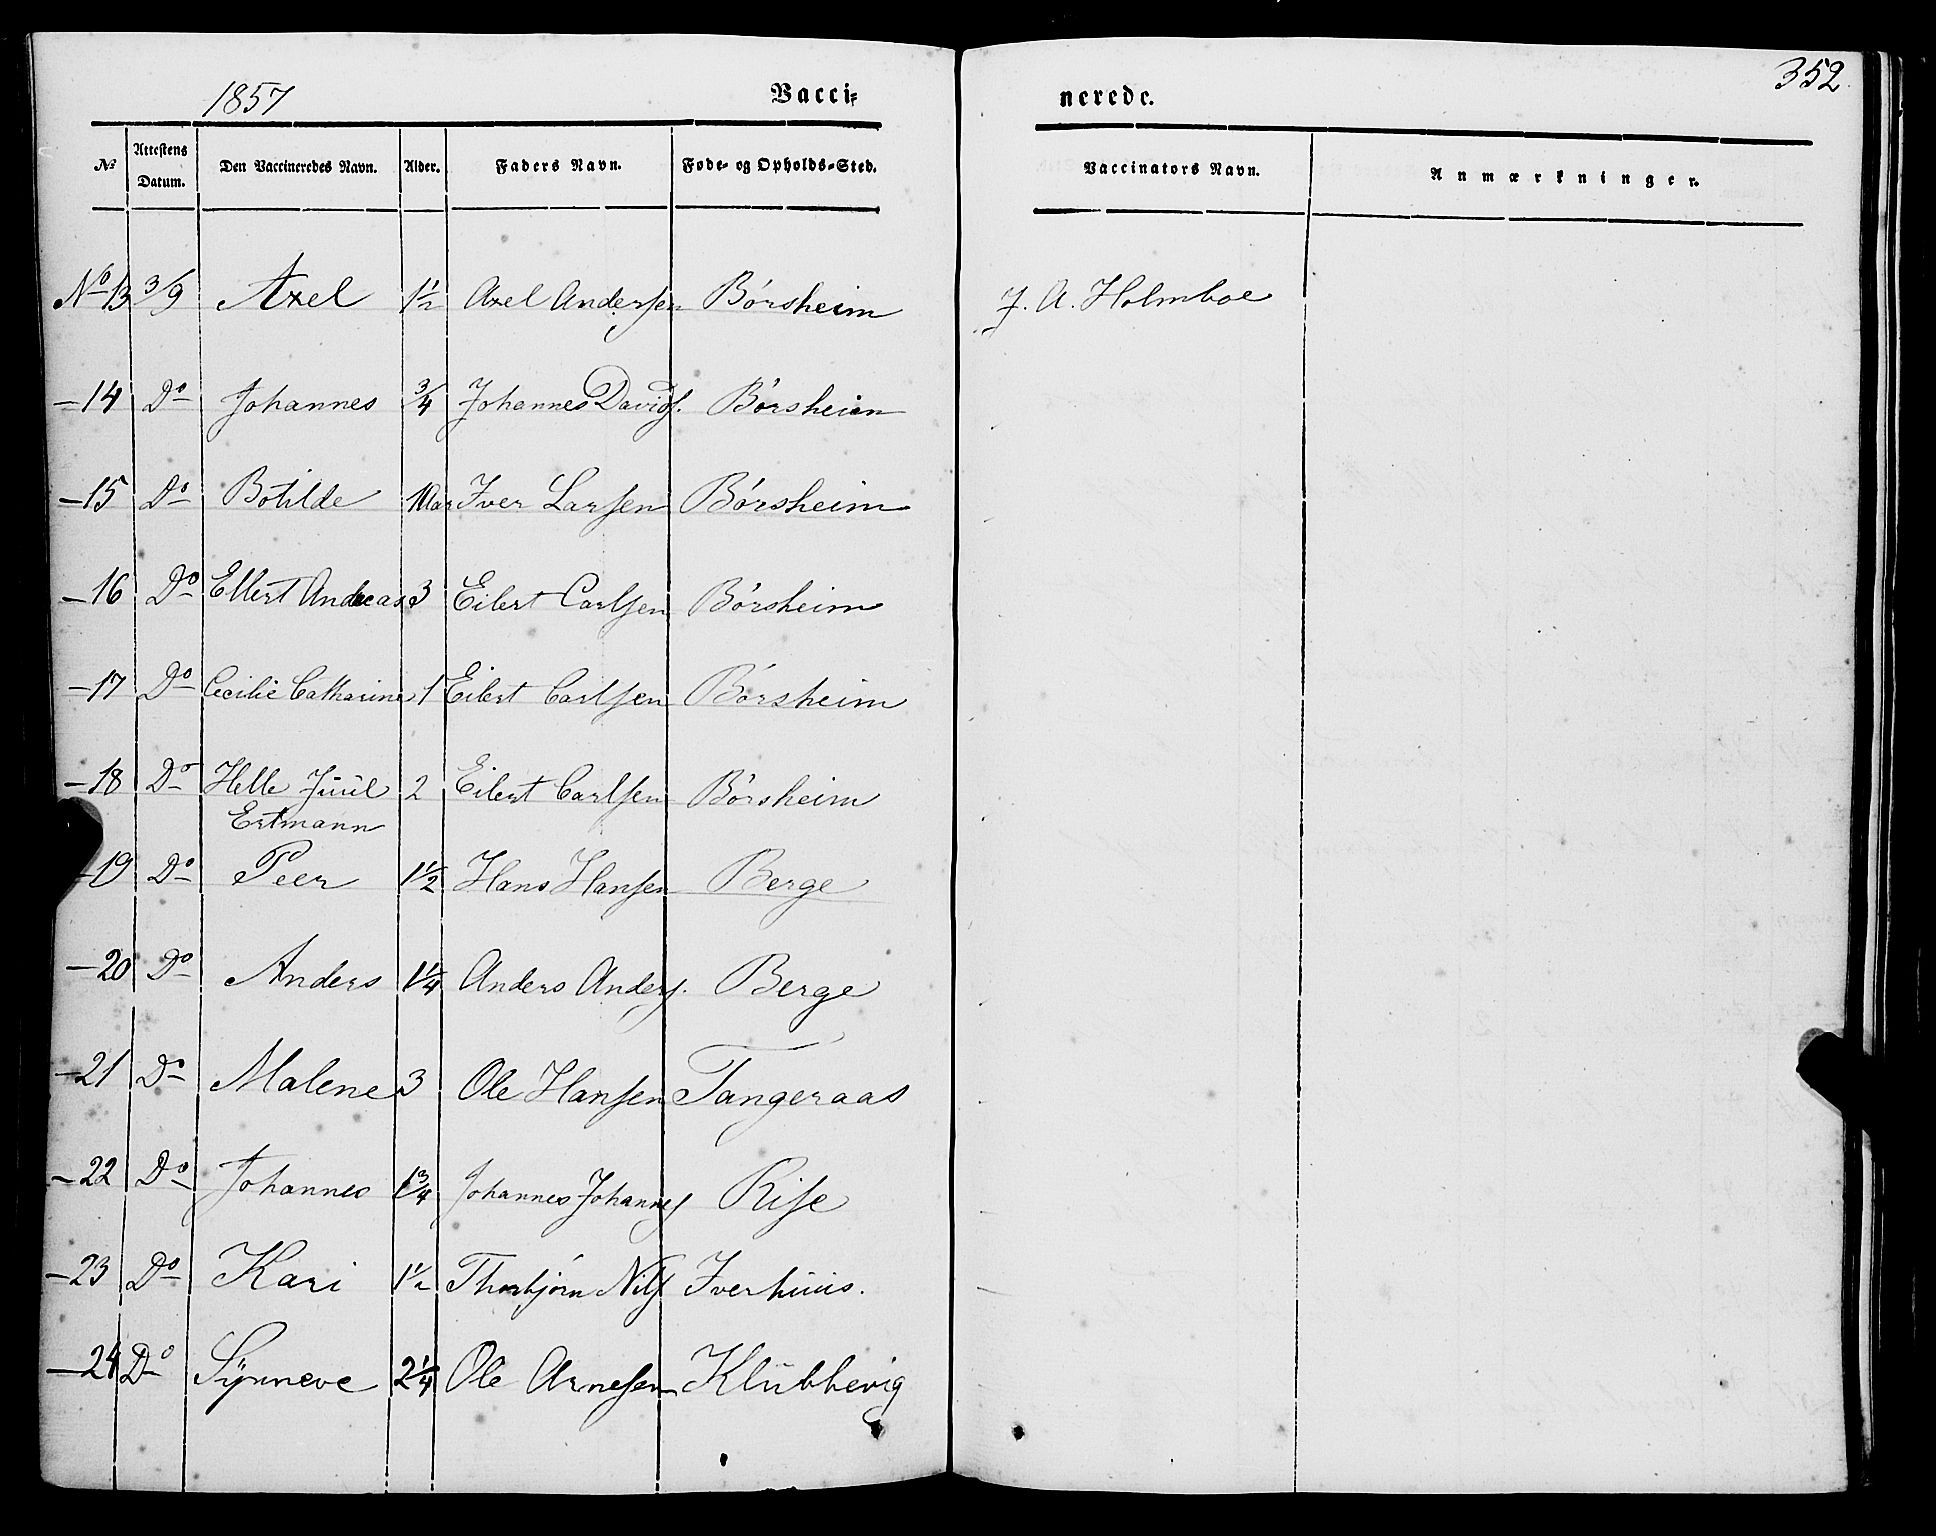 1857 Vacci= nerede. 352.
No Attestens Datum. Den Vaccineredes Navn. Alder. Faders Navn. Føde- og Opholds-Sted. Vaccinators Navn. Anmærkninger.
No 13 3/9 Axel 1½ Axel Andersen Børsheim J. A. Holmboe
—14 Do Johannes ¾ Johannes Davids. Børsheim
—15 Do Botilde 1 Aar Iver Larsen Børsheim
—16 Do Ellert Andreas 3 Eilert Carlsen Børsheim
—17 Do Cecilie Catharine 1 Eilert Carlsen Børsheim
—18 Do Helle Juul 2 Eilert Carlsen Børsheim
Ertmann
—19 Do Peer 1½ Hans Hansen Berge
—20 Do Anders 1¼ Anders Anders. Berge
—21 Do Malene 3 Ole Hansen Tangeraas
—22 Do Johannes 1¾ Johannes Johannes Rise
—23 Do Kari 1½ Thorbjørn Nils Iverhuus.
—24 Do Synneve 2¼ Ole Arnesen Klubbevig